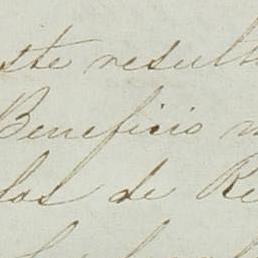 ste result
Beneficio
dos de Re